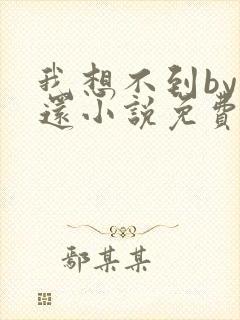 我想不到by
還小說免費
鄢某某